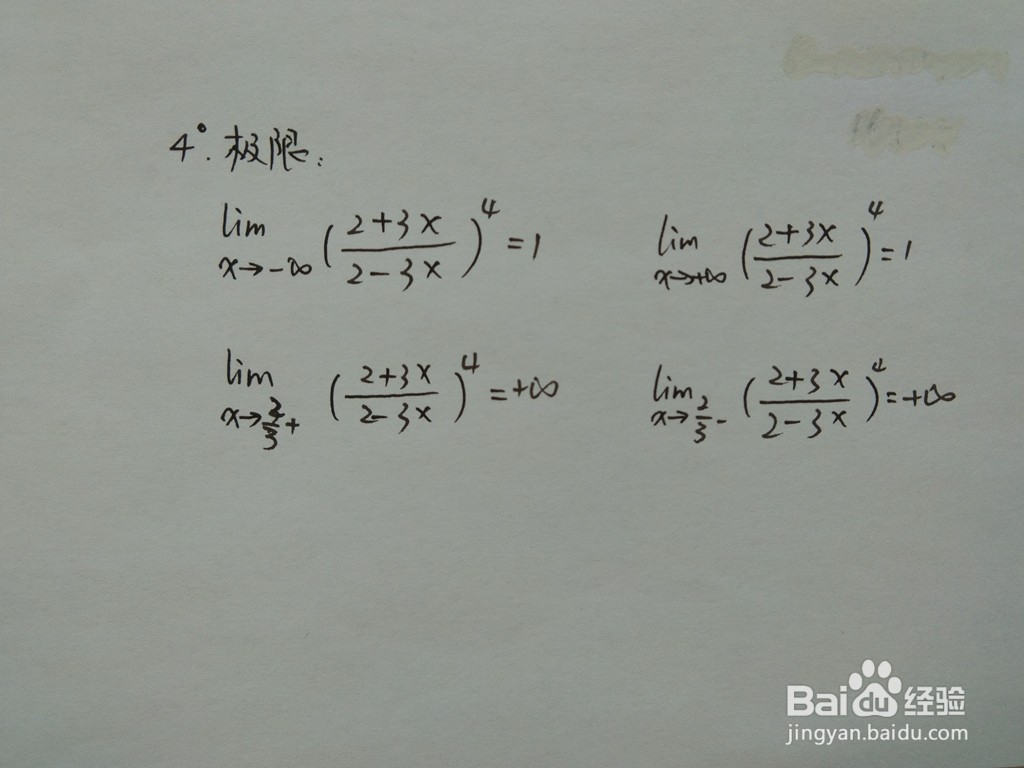 4°. 极限:
lim x→-∞ ( (2+3x)/(2-3x) )^4 = 1
lim x→+∞ ( (2+3x)/(2-3x) )^4 = 1
lim x→2/3+ ( (2+3x)/(2-3x) )^4 = +∞
lim x→2/3- ( (2+3x)/(2-3x) )^4 = +∞
Bai du 经验
jingyan.baidu.com